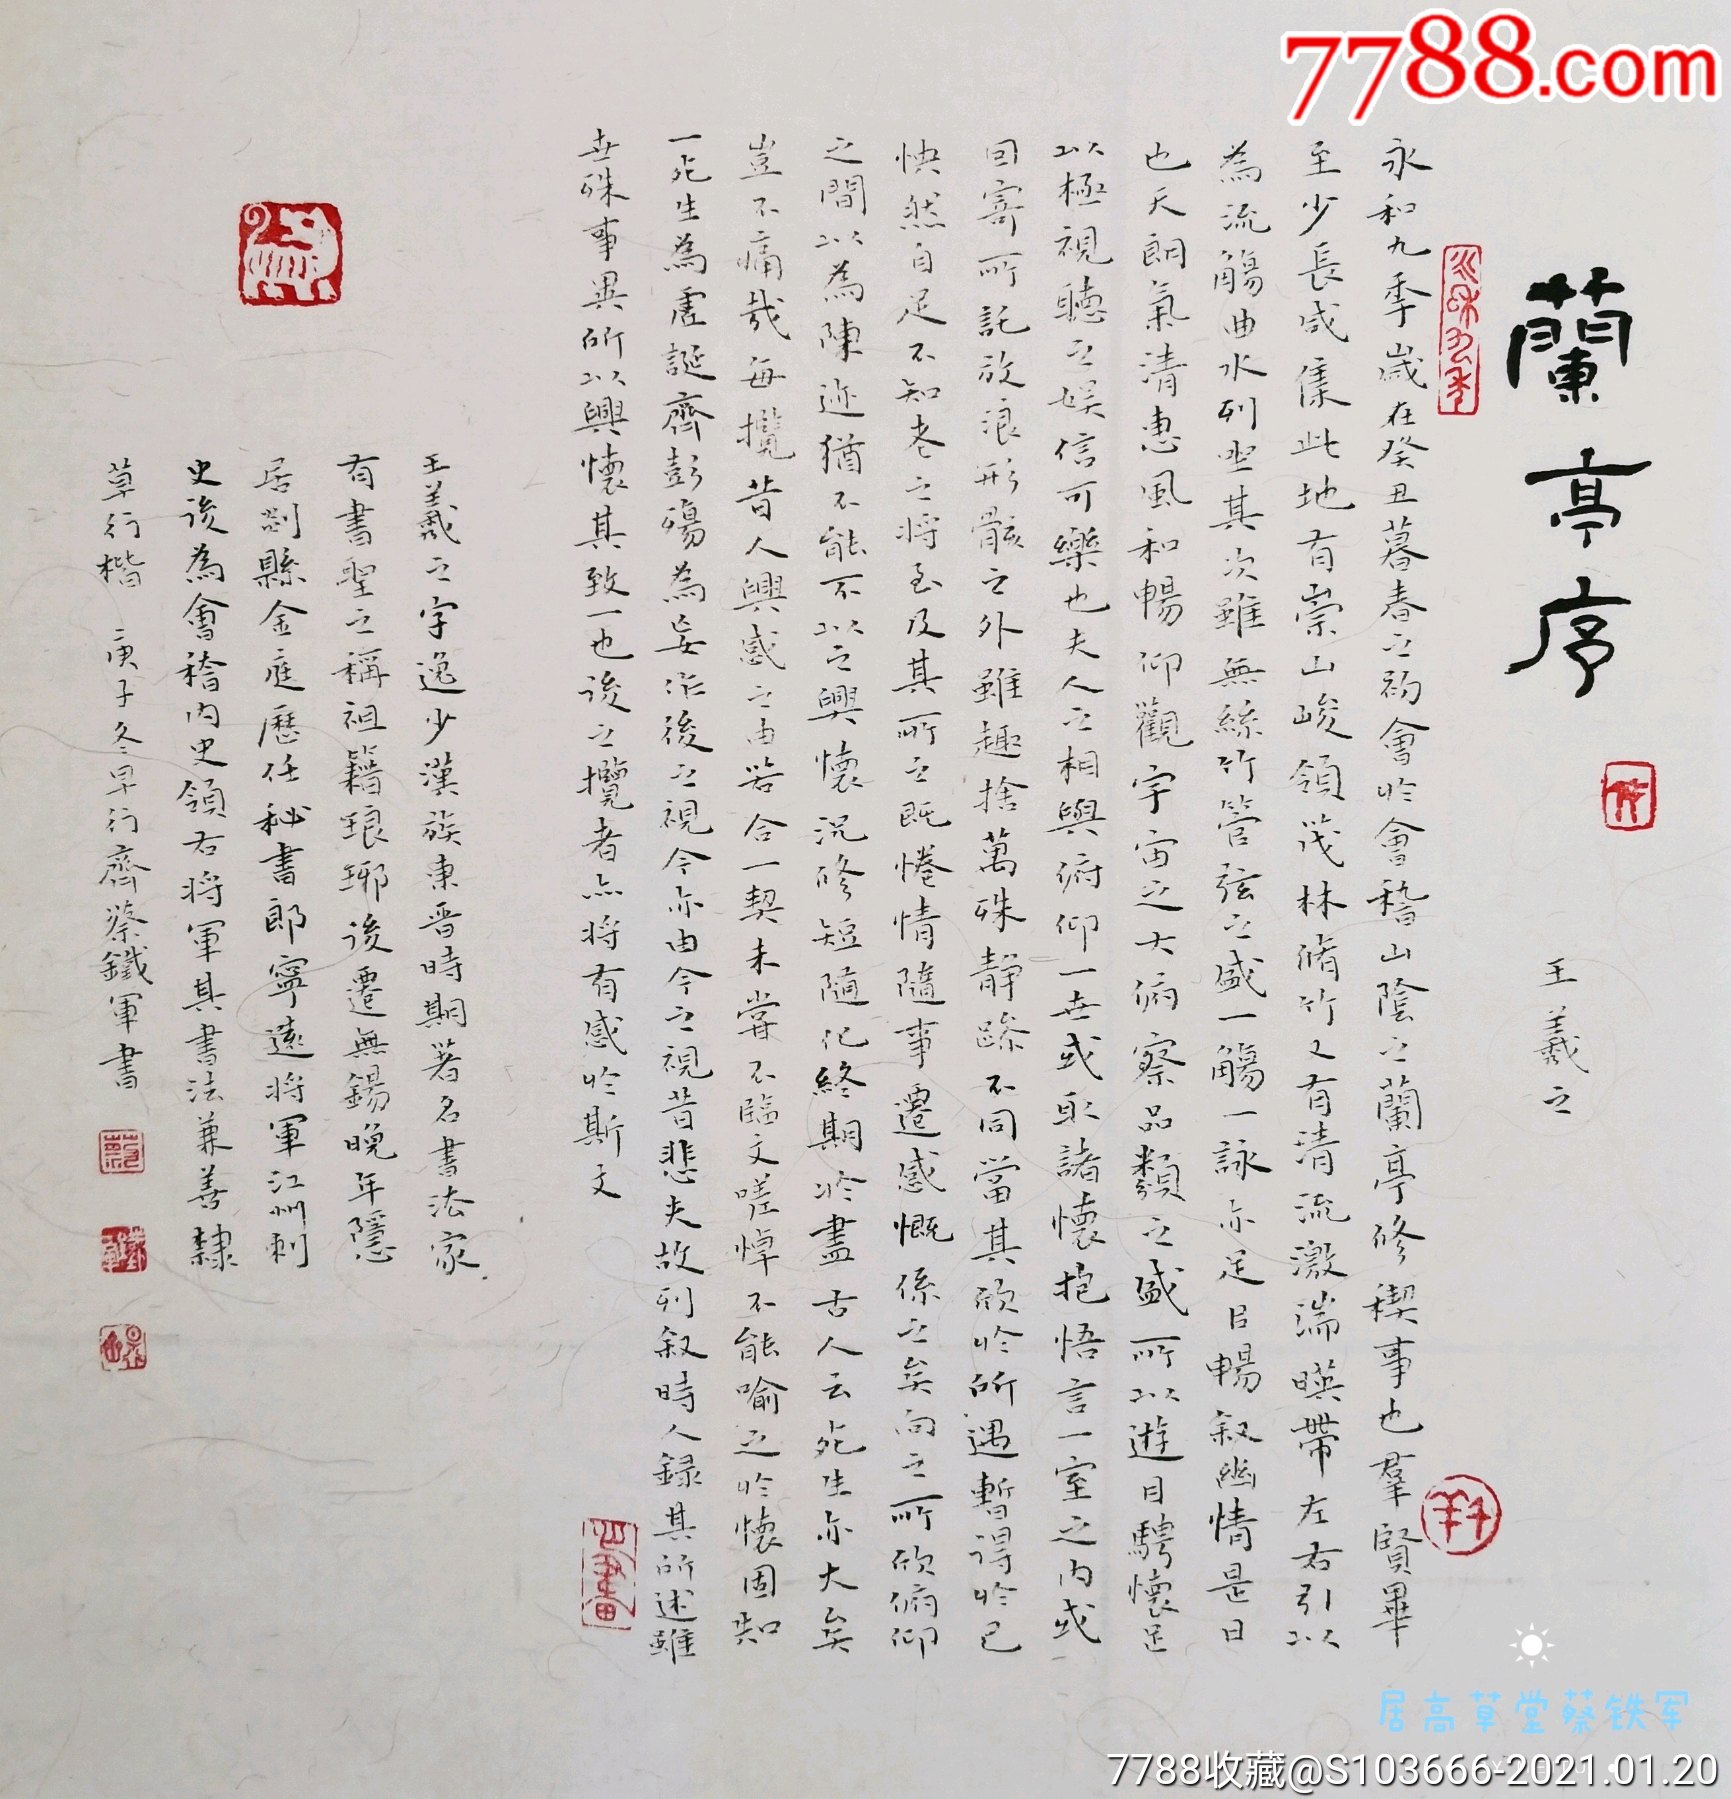 7788.com
蘭亭序
王羲之
永和九季歲在癸丑暮春之初會於會稽山陰之蘭亭修禊事也羣賢畢
至少長咸集此地有崇山峻領茂林脩竹又有清流激湍暎帶左右引以
為流觴曲水列坐其次雖無絲竹管弦之盛一觴一詠亦足目暢叙幽情是日
也天朗氣清惠風和暢仰觀宇宙之大俯察品類之盛所以遊目騁懷足
以極視聽之娛信可樂也夫人之相與俯仰一世或取諸懷抱悟言一室之內或
回寄所託放浪形骸之外雖趣捨萬殊靜躁不同當其欣於所遇暫得於己
快然自足不知老之將至及其所之既惓情隨事遷感慨係之矣向之所欣俯仰
之間以為陳迹猶不能不以之興懷況修短隨化終期於盡古人云死生亦大矣
豈不痛哉每攬昔人興感之由若合一契未嘗不臨文嗟悼不能喻之於懷固知
一死生為虛誕齊彭殤為妄作後之視今亦由今之視昔悲夫故列叙時人錄其所述雖
世殊事異所以興懷其致一也後之攬者亦將有感於斯文
王羲之字逸少漢族東晉時期著名書法家
有書聖之稱祖籍琅琊後遷無錫晚年隱
居剡縣金庭歷任秘書郎寧遠將軍江州刺
史後為會稽內史領右將軍其書法兼善隸
草行楷 庚子冬早行齊蔡鐵軍書
居高草堂蔡铁军
7788收藏@S103666-2021.01.20